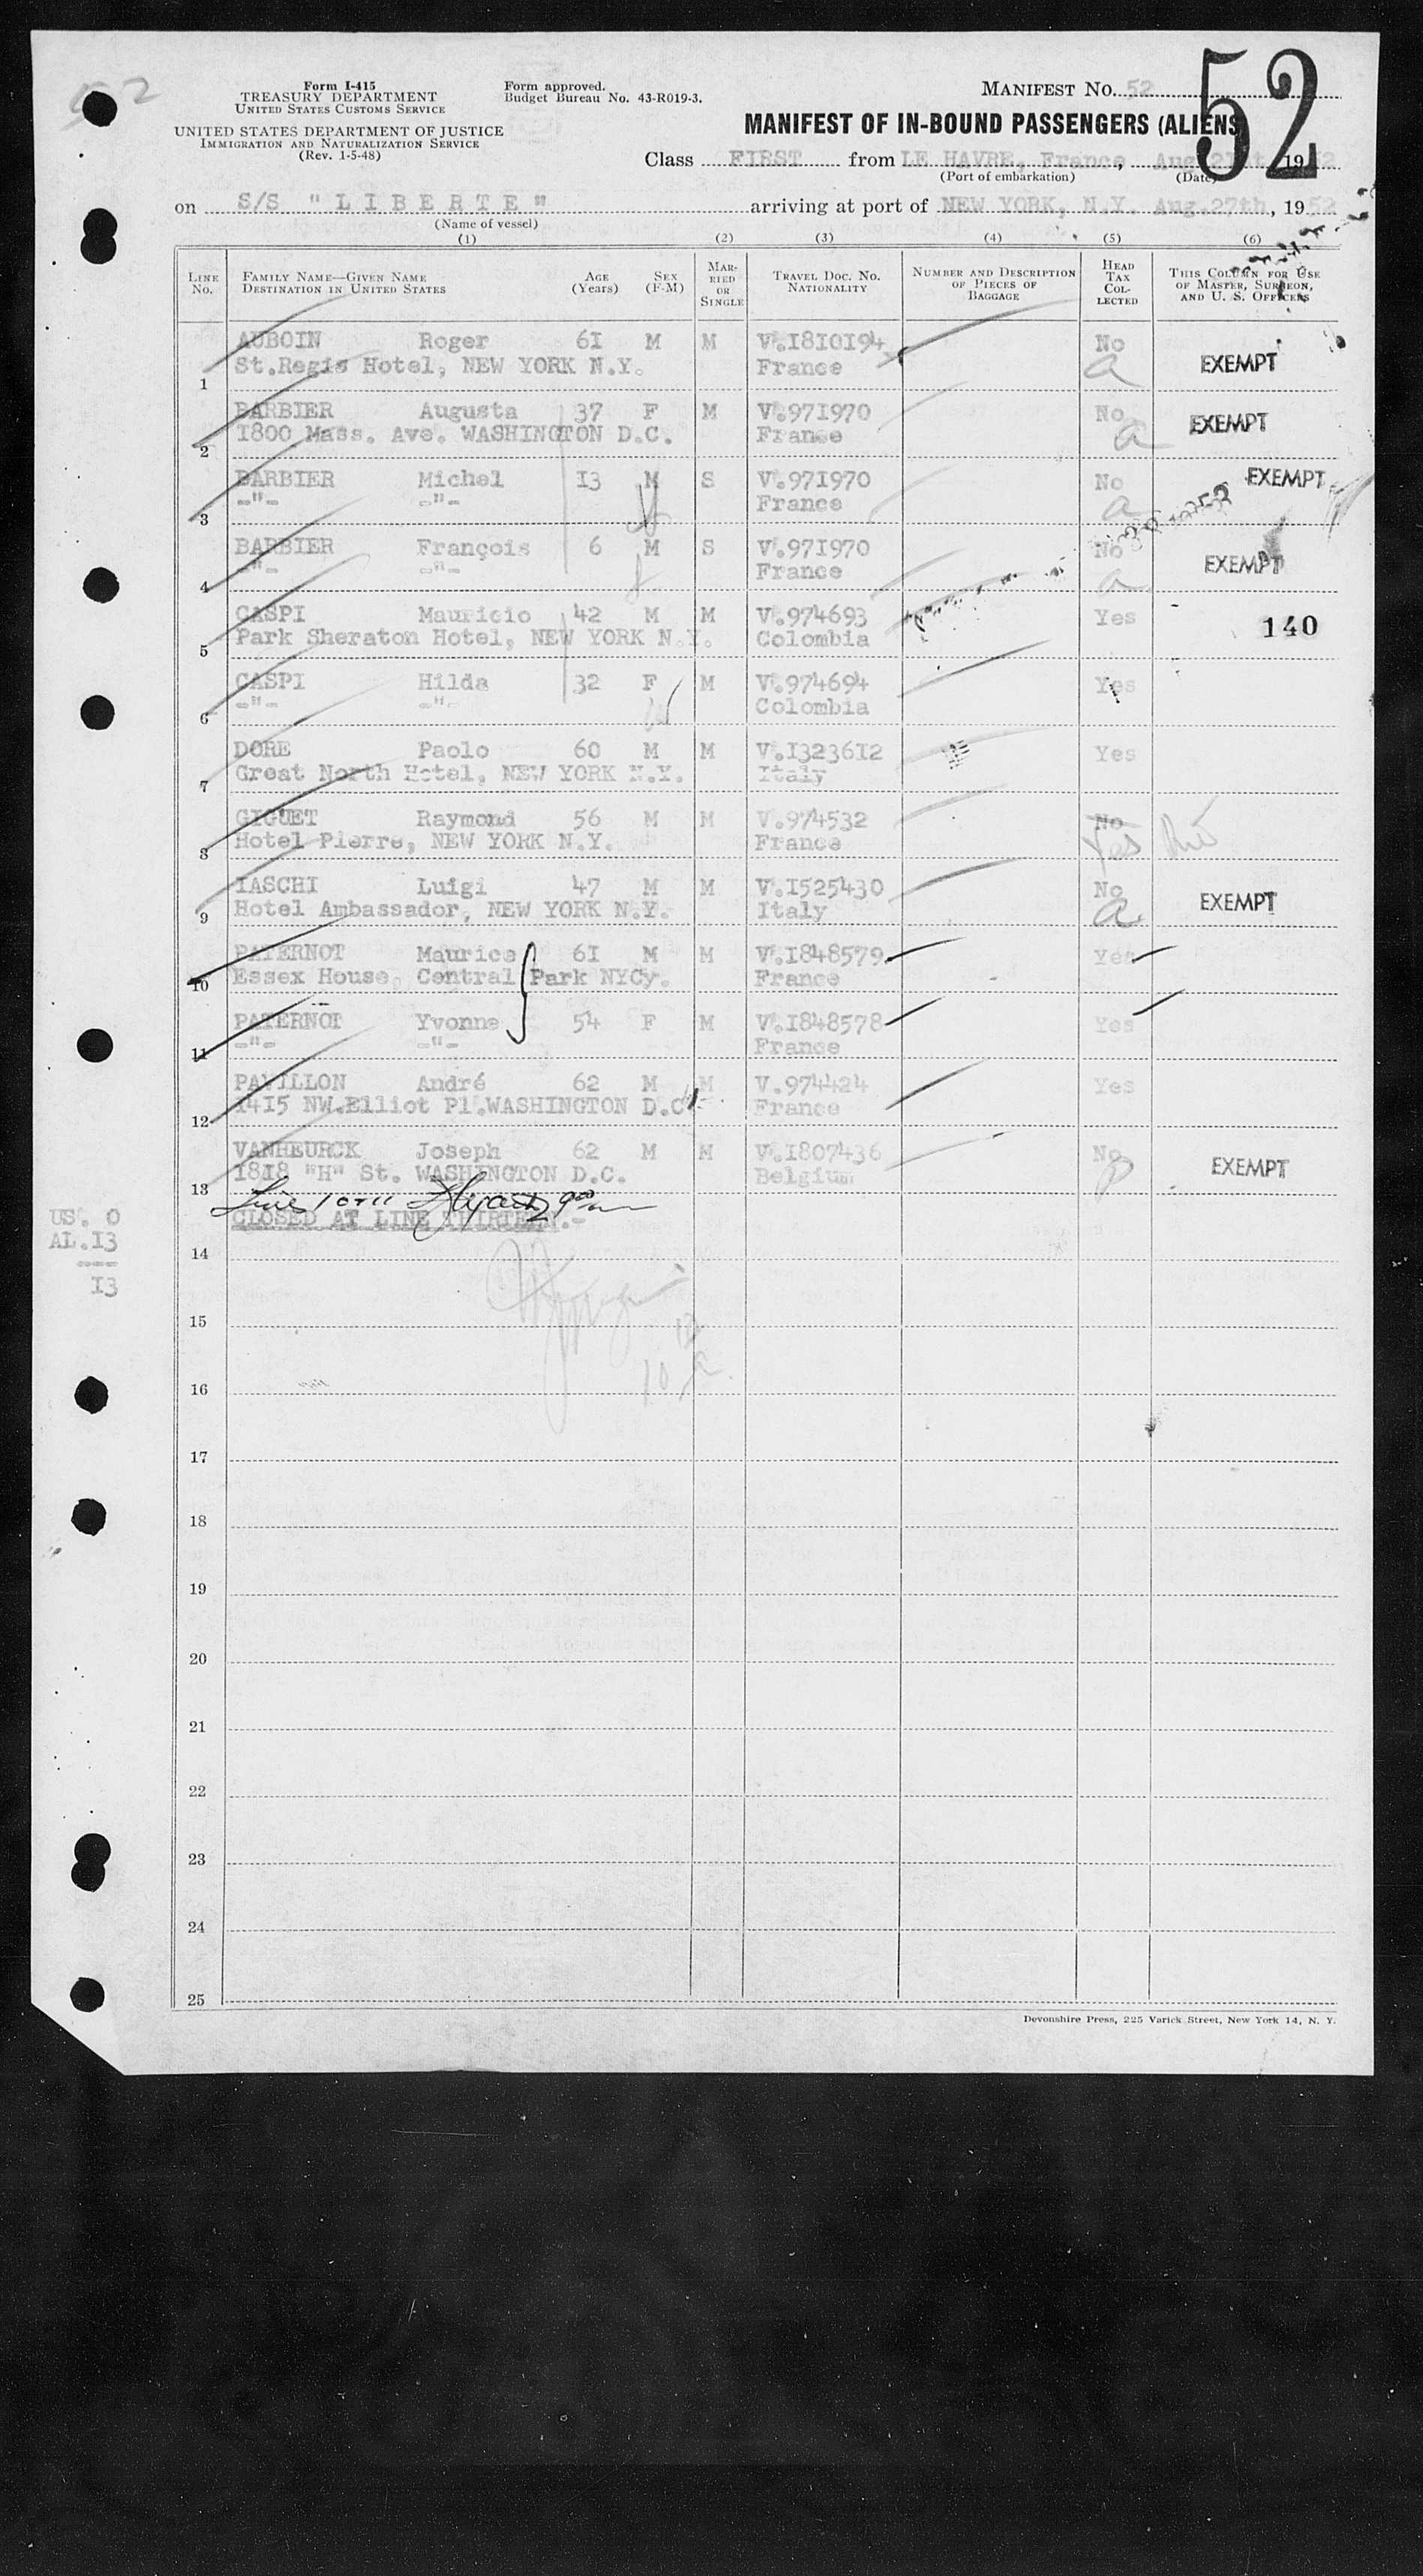 52
Form I-415
TREASURY DEPARTMENT
UNITED STATES CUSTOMS SERVICE
UNITED STATES DEPARTMENT OF JUSTICE
IMMIGRATION AND NATURALIZATION SERVICE
(Rev. 1-5-48)
Form approved.
Budget Bureau No. 43-R019-3.
MANIFEST NO. 52
52
MANIFEST OF IN-BOUND PASSENGERS (ALIENS
Class FIRST from LE HAVRE, France, Aug. 21st 1952
(Port of embarkation) (Date)
on S/S "LIBERTE" arriving at port of NEW YORK, N.Y. Aug.27th, 1952
(Name of vessel)
(1) (2) (3) (4) (5) (6)
LINE NO. FAMILY NAME—GIVEN NAME DESTINATION IN UNITED STATES AGE (Years) SEX (F-M) MARRIED OR SINGLE TRAVEL DOC. NO. NATIONALITY NUMBER AND DESCRIPTION OF PIECES OF BAGGAGE HEAD TAX COLLECTED THIS COLUMN FOR USE OF MASTER, SURGEON, AND U. S. OFFICERS
AUBOIN Roger 61 M M V.1810194 No EXEMPT
1 St.Regis Hotel, NEW YORK N.Y. France a
BARBIER Augusta 37 F M V.971970 No EXEMPT
2 1800 Mass. Ave. WASHINGTON D.C. France a
BARBIER Michel 13 M S V.971970 No EXEMPT
3 -"- -"- France a
BARBIER François 6 M S V.971970 No EXEMPT
4 -"- -"- France a
CASPI Mauricio 42 M M V.974693 Yes 140
5 Park Sheraton Hotel, NEW YORK N.Y. Colombia
CASPI Hilda 32 F M V.974694 Yes
6 -"- -"- Colombia
DORE Paolo 60 M M V.1323612 Yes
7 Great North Hotel, NEW YORK N.Y. Italy
GIGUET Raymond 56 M M V.974532 No
8 Hotel Pierre, NEW YORK N.Y. France Yes
IASCHI Luigi 47 M M V.1525430 No EXEMPT
9 Hotel Ambassador, NEW YORK N.Y. Italy a
PATERNOT Maurice 61 M M V.1848579 Yes
10 Essex House, Central Park NYCy. France
PATERNOT Yvonne 54 F M V.1848578 Yes
11 -"- -"- France
PAVILLON André 62 M M V.974424 Yes
12 1415 NW.Elliot Pl.WASHINGTON D.C. France
VANHEURCK Joseph 62 M M V.1807436 No EXEMPT
13 1818 "H" St. WASHINGTON D.C. Belgium
CLOSED AT LINE THIRTEEN.-
US. 0
AL.13
---
13
14
15
16
17
18
19
20
21
22
23
24
25
Devonshire Press, 225 Varick Street, New York 14, N. Y.